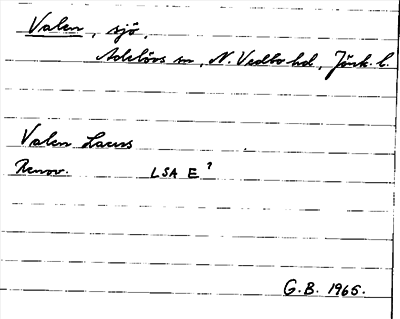 Valen, sjö,
Adelövs sn, N. Vedbo hd, Jönk. l.
Valen Lacus
Renov. LSA E 1
G.B. 1965.